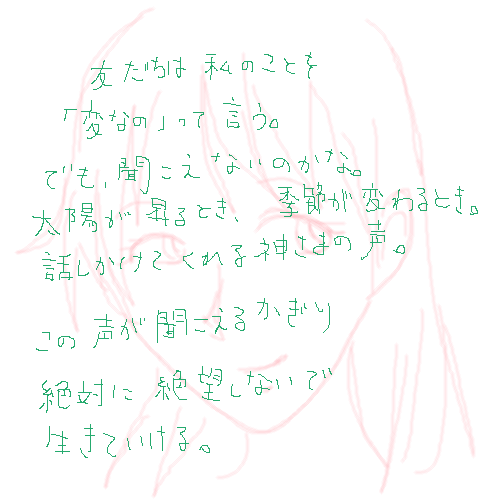 友だちは 私のことを
「変なの」って 言う。
でも、聞こえないのかな。
太陽が 昇るとき、 季節が 変わるとき。
話しかけてくれる神さまの声。
この 声が 聞こえる かぎり
絶対に 絶望しないで
生きていける。